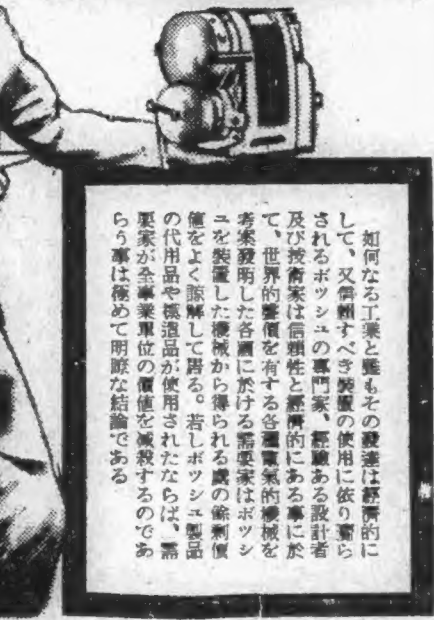 如何なる工業と雖もその發達は經濟的に
して、又信頼すべき裝置の使用に依り齎ら
されるボッシュの專門家、經驗ある設計者
及び技術家は信頼性と經濟的にある事に於
て、世界的聲價を有する各種電氣的機械を
考案發明した各國に於ける需要家はボッシ
ュを裝置した機械から得られる眞の餘剩價
値をよく諒解して居る。若しボッシュ製品
の代用品や模造品が使用されたならば、需
要家が全事業單位の價値を減殺するのであ
らう事は極めて明瞭な結論である